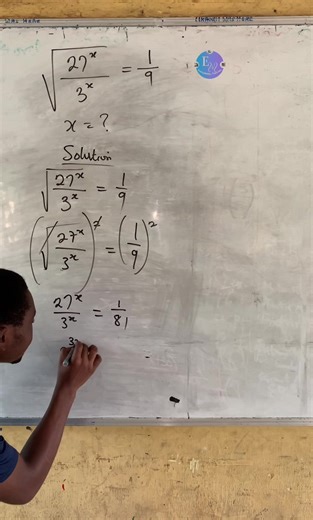 √(27ˣ/3ˣ) = 1/9
x = ?
Solution
√(27ˣ/3ˣ) = 1/9
(√(27ˣ/3ˣ))² = (1/9)²
27ˣ/3ˣ = 1/81
3